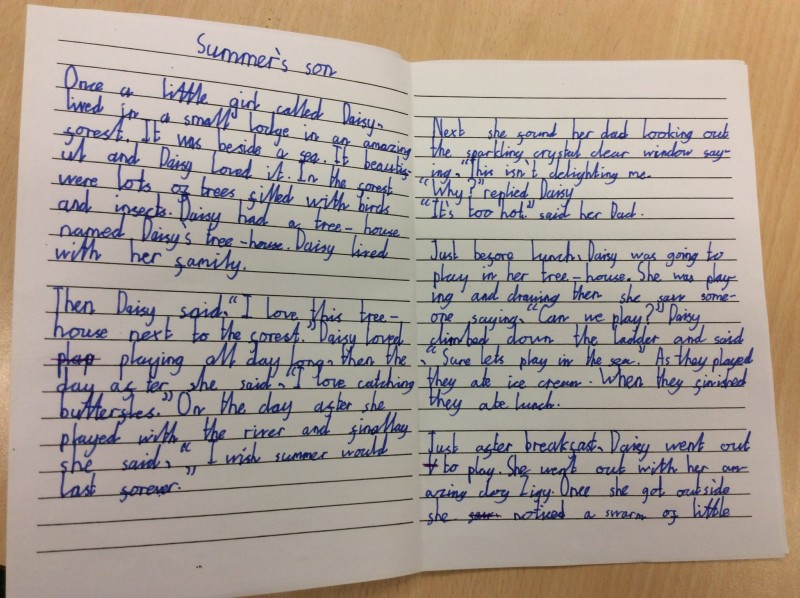 Summer's son
Once a little girl called Daisy,
lived in a small lodge in an amazing
forest. It was beside a sea. It beautif-
ul and Daisy loved it. In the forest
were lots of trees filled with birds
and insects. Daisy had a tree-house
named Daisy's tree-house. Daisy lived
with her family.
Then Daisy said, "I love this tree-
house next to the forest." Daisy loved
playing all day long, then the
day after she said, "I love catching
butterflies." On the day after she
played with the river and finallay
she said, "I wish summer would
last forever."
Next she found her dad looking out
the sparkling, crystal clear window say-
ing, "This isn't delighting me.
"Why?" replied Daisy
"It's too hot." said her Dad.
Just before lunch, Daisy was going to
play in her tree-house. She was play-
ing and drawing then she saw some-
one saying, "Can we play?" Daisy
climbed down the ladder and said
, "Sure lets play in the sea." As they played
they ate ice cream. When they finished
they ate lunch.
Just after breakfast, Daisy went out
to play. She went out with her am-
azing dog Zigy. Once she got outside
she noticed a swarm of little